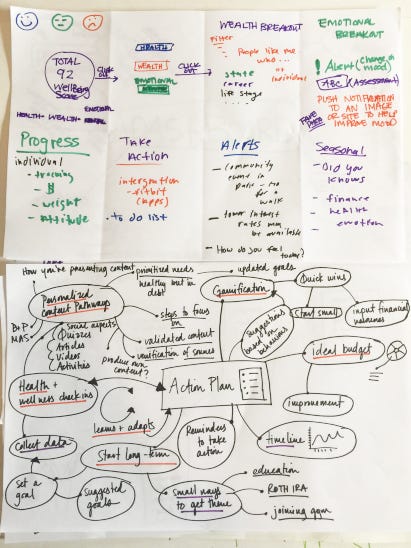 TOTAL
92
WellBeing
Score
HEALTH+ WEALTH+
EMOTIONAL
CLICK
OUT
HEALTH
WEALTH
EMOTIONAL
CLICK
OUT
WEALTH BREAKOUT
Filter
People like me
who...
or
individual
state
career
life stage
EMOTIONAL
BREAKOUT
! Alert (Change in
mood)
ABC (ASSESSMENT)
PUSH NOTIFICATION
TO AN IMAGE
OR SITE TO HELP
IMPROVE MOOD
Progress
individual
- tracking
- $
- weight
- attitude
Take
Action
intergration
- fitbit
(apps)
- to do list
Alerts
- Community
event in
Park
for a
walk
- lower interest
rates may
be available
- How do you feel
today?
Seasonal
- Did you
knows
- finance
- health
- emotion
How you're presenting content
prioritized needs
healthy but in
debt
updated goals
Personalized
content pathways
steps to focus
on
validated content
verification of sources
Gamification
Quick wins
Start small
input financial
volumes
suggestions
based on
behaviors
ideal budget
social aspects
Quizzes
Articles
Videos
Activities
produce own
content?
Health +
wellness check-ins
Action Plan
learns + adapts
improvement
collect data
Start long-term
Reminders
to take
action
timeline
set a
goal
suggested
goals
small ways
to get there
education
ROTH IRA
joining gym